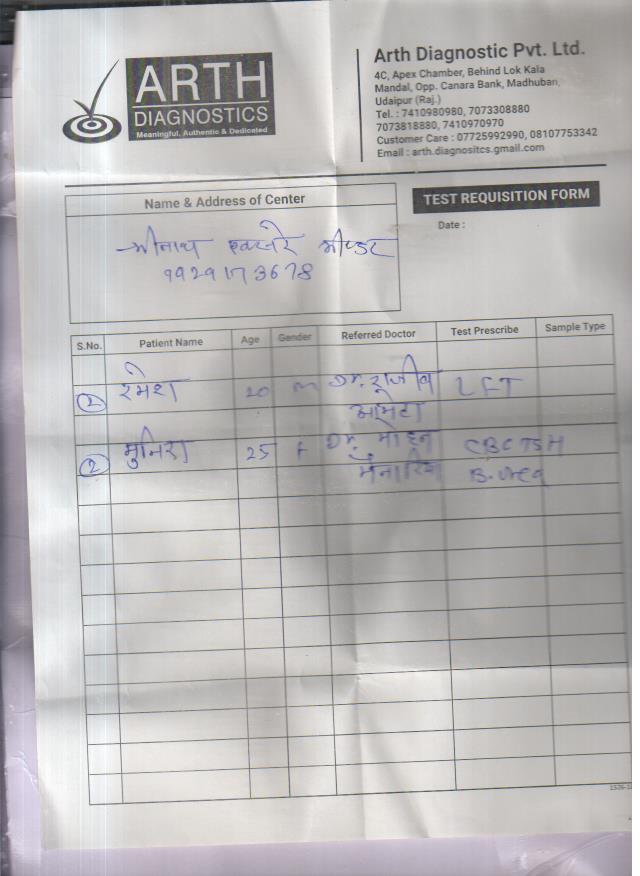 ARTH
DIAGNOSTICS
Meaningful, Authentic & Dedicated
Arth Diagnostic Pvt. Ltd.
4C, Apex Chamber, Behind Lok Kala
Mandal, Opp. Canara Bank, Madhuban,
Udaipur (Raj.)
Tel. : 7410980980, 7073308880
7073818880, 7410970970
Customer Care : 07725992990, 08107753342
Email : arth.diagnositcs.gmail.com
Name & Address of Center
TEST REQUISITION FORM
Date :
श्रीनाथ भीण्डर
9929173678
S.No. Patient Name Age Gender Referred Doctor Test Prescribe Sample Type
1 रमेश 20 m Dr. राजीव LFT
आमेटा
2 मुनिरा 25 f Dr. मोहन CBC TSH
मेनारिया B. Urea